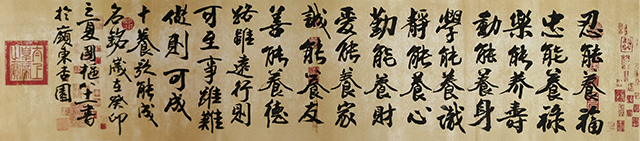 忍能養福
忠能養祿
樂能养壽
動能養身
學能養識
靜能養心
勤能養財
愛能養家
誠能養友
善能養德
路雖遠行則
可至事雖難
做則可成
十養能成
名銘歲在癸卯
夏國書
於嶺東杏園